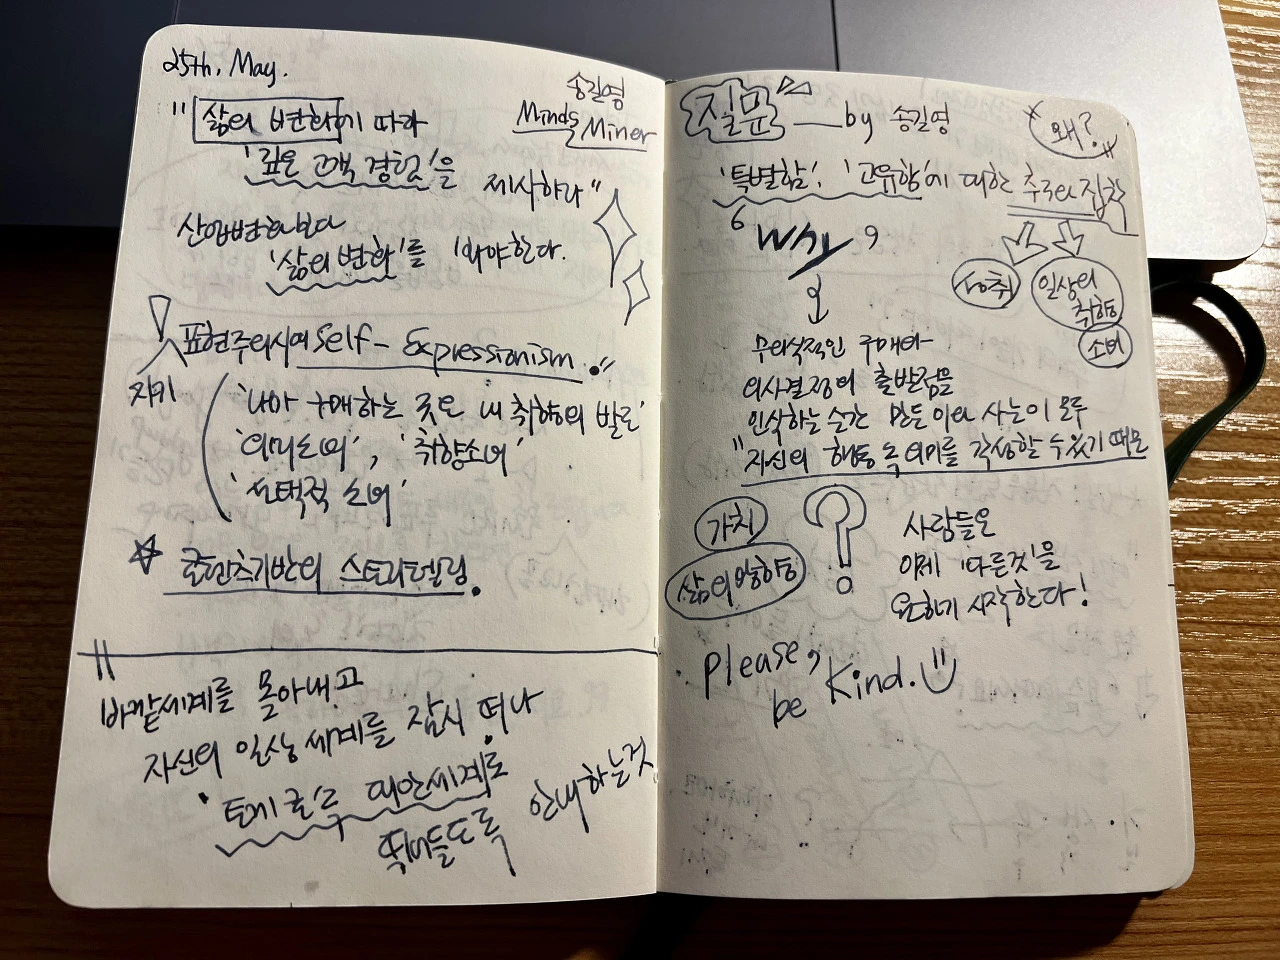 25th, May.
송길영
Minds
Miner
"삶의 변화에 따라
'깊은 고객 경험'을
제시하라"
산업변화보다
'삶의 변화'를 봐야한다.
표현주의시대 Self - Expressionism."
자기
'나의 구매하는 것은 내 취향의 발로'
'의미소비', '취향소비'
'선택적 소비'
콘텐츠기반의 스토리텔링.
바깥세계를 몰아내고
자신의 일상세계를 잠시 떠나
'토끼굴'로 대안세계로
뛰어들도록 안내하는것
질문 by 송길영
왜?
'특별함', '고유함'에 대한 추구와 집착
'Why'
성취
일상의
취향
소비
무의식적인 구매와
의사결정의 출발점을
인식하는 순간 만든 이와 사는이 모두
"자신의 행동 속 의미를 각성할 수 있기 때문
가치
삶의 방향
사람들은
이제 '다른것'을
원하기 시작한다!
Please,
be Kind.